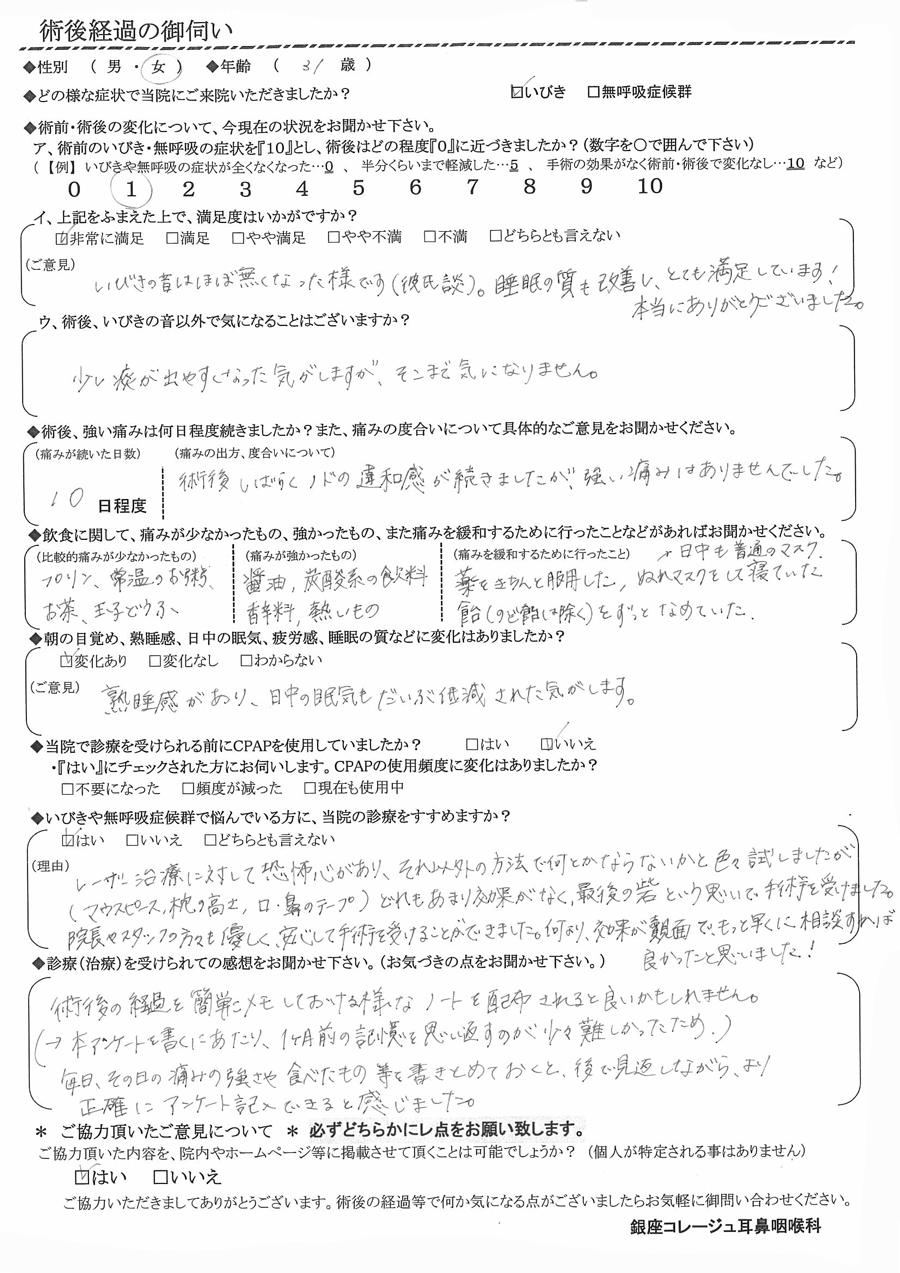 術後経過の御伺い
◆性別 ( 男 ・ 女 ) ◆年齢 ( 31 歳 )
◆どの様な症状で当院にご来院いただきましたか? ☑いびき □無呼吸症候群
◆術前・術後の変化について、今現在の状況をお聞かせ下さい。
ア、術前のいびき・無呼吸の症状を『10』とし、術後はどの程度『0』に近づきましたか?(数字を○で囲んで下さい)
(【例】いびきや無呼吸の症状が全くなくなった…0 、 半分くらいまで軽減した…5 、 手術の効果がなく術前・術後で変化なし…10 など)
0 1 2 3 4 5 6 7 8 9 10
イ、上記をふまえた上で、満足度はいかがですか?
☑非常に満足 □満足 □やや満足 □やや不満 □不満 □どちらとも言えない
(ご意見)
いびきの音はほぼ無くなった様です(彼氏談)。睡眠の質も改善し、とても満足しています!
本当にありがとうございました。
ウ、術後、いびきの音以外で気になることはございますか?
少し痰が出やすくなった気がしますが、そこまで気になりません。
◆術後、強い痛みは何日程度続きましたか?また、痛みの度合いについて具体的なご意見をお聞かせください。
(痛みが続いた日数) (痛みの出方、度合いについて)
術後しばらくノドの違和感が続きましたが、強い痛みはありませんでした。
10 日程度
◆飲食に関して、痛みが少なかったもの、強かったもの、また痛みを緩和するために行ったことなどがあればお聞かせください。
(比較的痛みが少なかったもの) (痛みが強かったもの) (痛みを緩和するために行ったこと) 日中も普通のマスク.
プリン、常温のお粥、 醤油,炭酸系の飲料 薬をきちんと服用した,ぬれマスクをして寝ていた
お茶、玉子どうふ、 香辛料,熱いもの 飴(のど飴は除く)をずっとなめていた.
◆朝の目覚め、熟睡感、日中の眠気、疲労感、睡眠の質などに変化はありましたか?
☑変化あり □変化なし □わからない
(ご意見) 熟睡感があり、日中の眠気もだいぶ低減された気がします。
◆当院で診療を受けられる前にCPAPを使用していましたか? □はい ☑いいえ
・『はい』にチェックされた方にお伺いします。CPAPの使用頻度に変化はありましたか?
□不要になった □頻度が減った □現在も使用中
◆いびきや無呼吸症候群で悩んでいる方に、当院の診療をすすめますか?
☑はい □いいえ □どちらとも言えない
(理由) レーザー治療に対して恐怖心があり、それ以外の方法で何とかならないかと色々試しましたが
(マウスピース,枕の高さ,口・鼻のテープ)どれもあまり効果がなく,最後の砦という思いで、手術を受けました。
院長やスタッフの方々も優しく、安心して手術を受けることができました。何より、効果が覿面で、もっと早くに相談すれば
良かったと思いました!
◆診療(治療)を受けられての感想をお聞かせ下さい。(お気づきの点をお聞かせ下さい。)
術後の経過を簡単にメモしておける様なノートを配布されると良いかもしれません。
(→本アンケートを書くにあたり、1ヶ月前の記憶を思い返すのが少々難しかったため.)
毎日、その日の痛みの強さや食べたもの等を書きとめておくと、後で見返しながら、より
正確にアンケート記入できると感じました。
* ご協力頂いたご意見について * 必ずどちらかにレ点をお願い致します。
ご協力頂いた内容を、院内やホームページ等に掲載させて頂くことは可能でしょうか? (個人が特定される事はありません)
☑はい □いいえ
ご協力いただきましてありがとうございます。術後の経過等で何か気になる点がございましたらお気軽に御問い合わせください。
銀座コレージュ耳鼻咽喉科